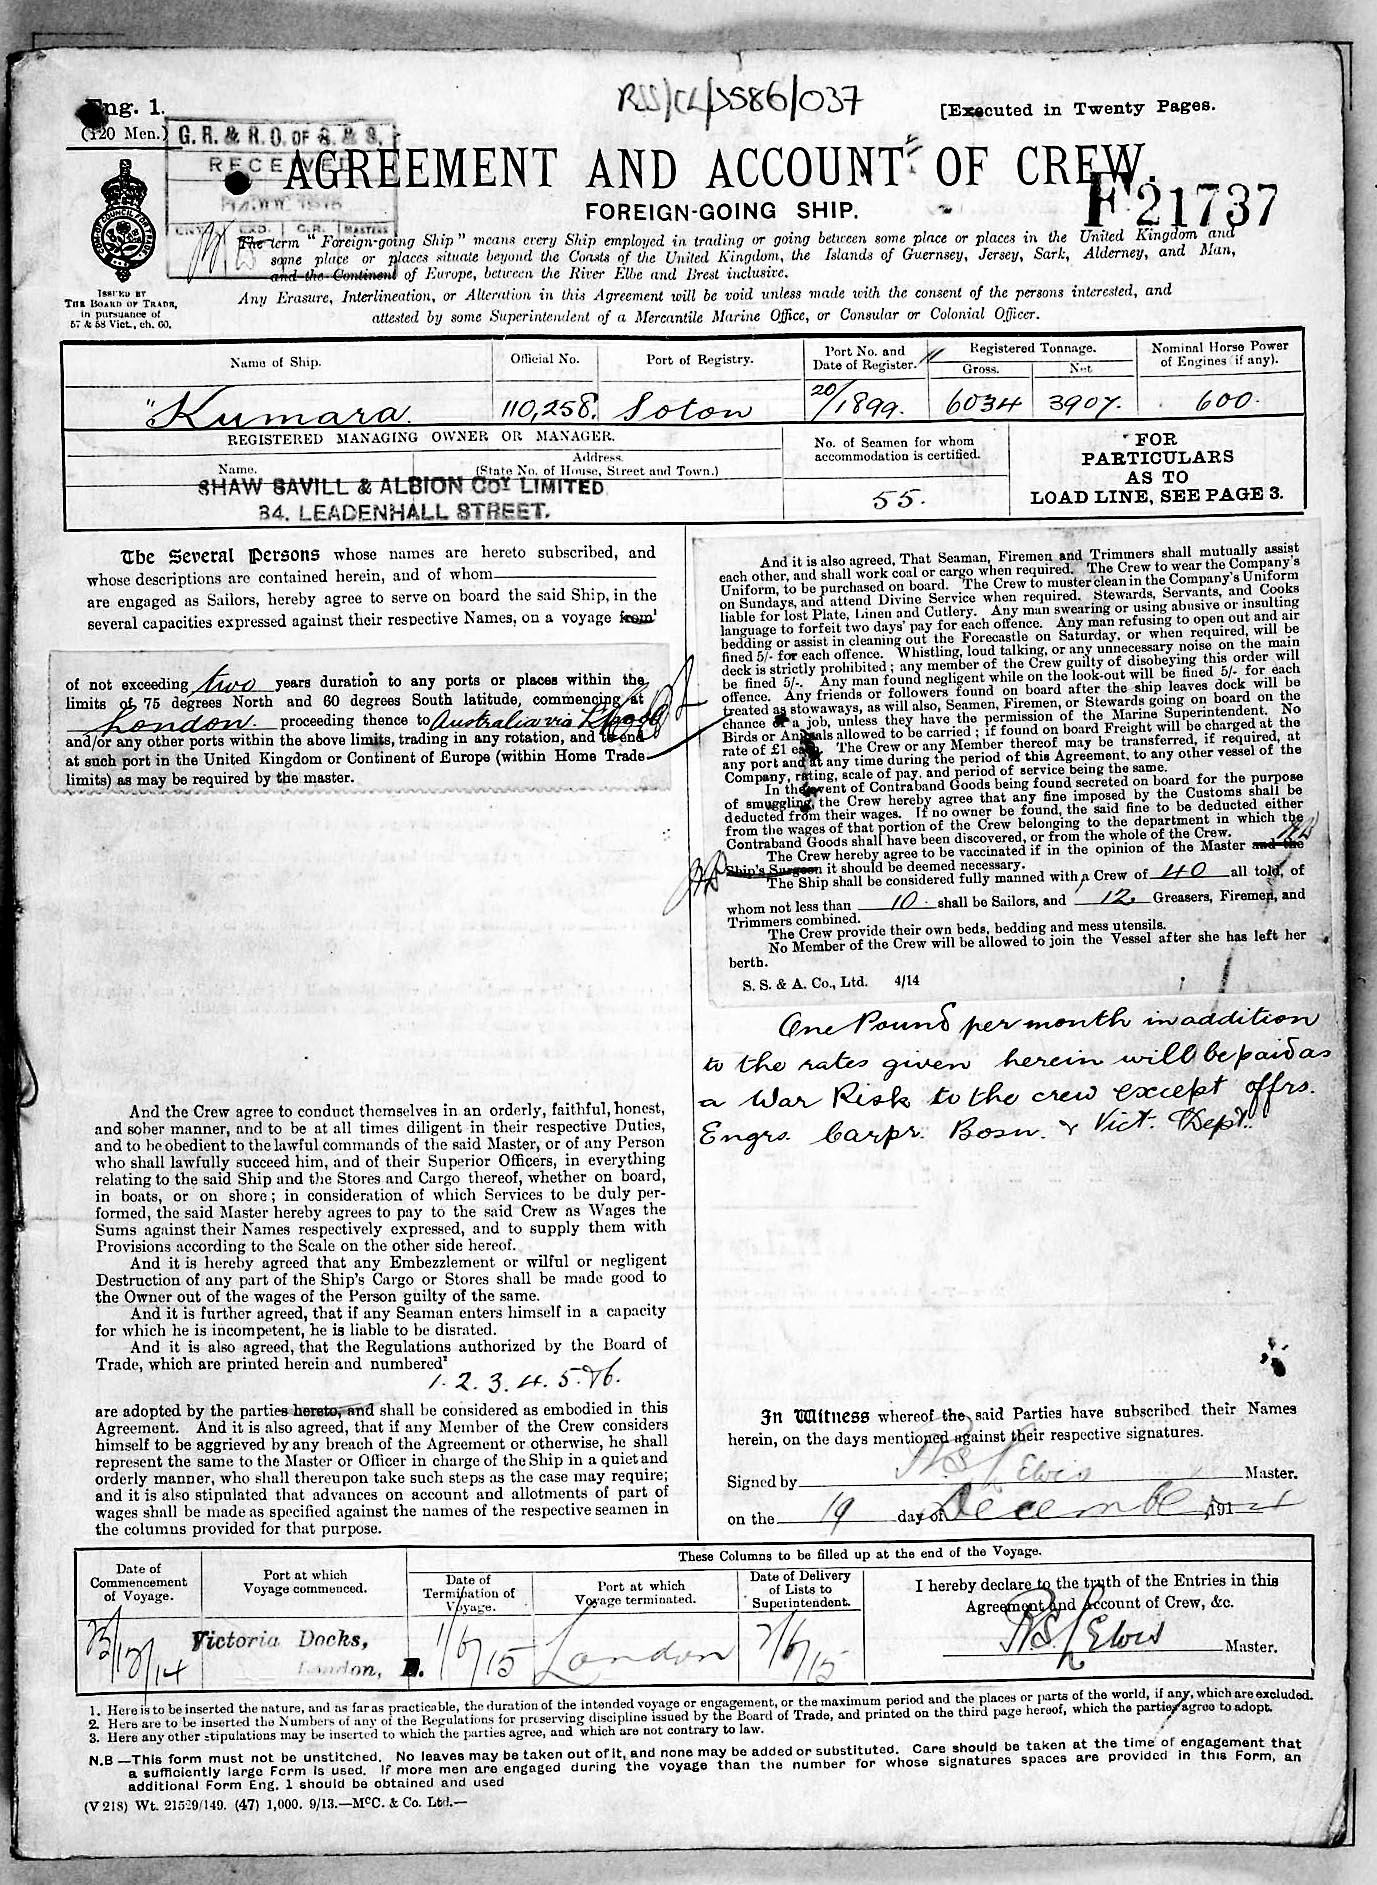 RSS/CL/
Eng. 1.
[Executed in Twenty Pages.
(120 Men.)
G. R. & R. O. OF S. & S.
RECEIVED
AGREEMENT AND ACCOUNT OF CREW.
F 21737
FOREIGN-GOING SHIP.
ISSUED BY
THE BOARD OF TRADE,
in pursuance of
57 & 58 Vict., ch. 60.
The term "Foreign-going Ship" means every Ship employed in trading or going between some place or places in the United Kingdom and
some place or places situate beyond the Coasts of the United Kingdom, the Islands of Guernsey, Jersey, Sark, Alderney, and Man,
and the Continent of Europe, between the River Elbe and Brest inclusive.
Any Erasure, Interlineation, or Alteration in this Agreement will be void unless made with the consent of the persons interested, and
attested by some Superintendent of a Mercantile Marine Office, or Consular or Colonial Officer.
Name of Ship.
Official No.
Port of Registry.
Port No. and
Date of Register.
Registered Tonnage.
Gross.
Net
Nominal Horse Power
of Engines (if any).
"Kumara.
110,258.
Soton
20/1899.
6034
3907.
600.
REGISTERED MANAGING OWNER OR MANAGER.
Name.
Address.
(State No. of House, Street and Town.)
SHAW SAVILL & ALBION COY LIMITED
34, LEADENHALL STREET.
No. of Seamen for whom
accommodation is certified.
55.
FOR
PARTICULARS
AS TO
LOAD LINE, SEE PAGE 3.
The Several Persons whose names are hereto subscribed, and
whose descriptions are contained herein, and of whom
are engaged as Sailors, hereby agree to serve on board the said Ship, in the
several capacities expressed against their respective Names, on a voyage from¹
of not exceeding two years duration to any ports or places within the
limits of 75 degrees North and 60 degrees South latitude, commencing at
London. proceeding thence to Australia via
and/or any other ports within the above limits, trading in any rotation, and to end
at such port in the United Kingdom or Continent of Europe (within Home Trade
limits) as may be required by the master.
And the Crew agree to conduct themselves in an orderly, faithful, honest,
and sober manner, and to be at all times diligent in their respective Duties,
and to be obedient to the lawful commands of the said Master, or of any Person
who shall lawfully succeed him, and of their Superior Officers, in everything
relating to the said Ship and the Stores and Cargo thereof, whether on board,
in boats, or on shore; in consideration of which Services to be duly per-
formed, the said Master hereby agrees to pay to the said Crew as Wages the
Sums against their Names respectively expressed, and to supply them with
Provisions according to the Scale on the other side hereof.
And it is hereby agreed that any Embezzlement or wilful or negligent
Destruction of any part of the Ship's Cargo or Stores shall be made good to
the Owner out of the wages of the Person guilty of the same.
And it is further agreed, that if any Seaman enters himself in a capacity
for which he is incompetent, he is liable to be disrated.
And it is also agreed, that the Regulations authorized by the Board of
Trade, which are printed herein and numbered²
1. 2. 3. 4. 5. & 6.
are adopted by the parties hereto, and shall be considered as embodied in this
Agreement. And it is also agreed, that if any Member of the Crew considers
himself to be aggrieved by any breach of the Agreement or otherwise, he shall
represent the same to the Master or Officer in charge of the Ship in a quiet and
orderly manner, who shall thereupon take such steps as the case may require;
and it is also stipulated that advances on account and allotments of part of
wages shall be made as specified against the names of the respective seamen in
the columns provided for that purpose.
And it is also agreed, That Seaman, Firemen and Trimmers shall mutually assist
each other, and shall work coal or cargo when required. The Crew to wear the Company's
Uniform, to be purchased on board. The Crew to muster clean in the Company's Uniform
on Sundays, and attend Divine Service when required. Stewards, Servants, and Cooks
liable for lost Plate, Linen and Cutlery. Any man swearing or using abusive or insulting
language to forfeit two days' pay for each offence. Any man refusing to open out and air
bedding or assist in cleaning out the Forecastle on Saturday, or when required, will be
fined 5/- for each offence. Whistling, loud talking, or any unnecessary noise on the main
deck is strictly prohibited; any member of the Crew guilty of disobeying this order will
be fined 5/-. Any man found negligent while on the look-out will be fined 5/- for each
offence. Any friends or followers found on board after the ship leaves dock will be
treated as stowaways, as will also, Seamen, Firemen, or Stewards going on board on the
chance of a job, unless they have the permission of the Marine Superintendent. No
Birds or Animals allowed to be carried; if found on board Freight will be charged at the
rate of £1 each. The Crew or any Member thereof may be transferred, if required, at
any port and at any time during the period of this Agreement, to any other vessel of the
Company, rating, scale of pay, and period of service being the same.
In the event of Contraband Goods being found secreted on board for the purpose
of smuggling, the Crew hereby agree that any fine imposed by the Customs shall be
deducted from their wages. If no owner be found, the said fine to be deducted either
from the wages of that portion of the Crew belonging to the department in which the
Contraband Goods shall have been discovered, or from the whole of the Crew.
The Crew hereby agree to be vaccinated if in the opinion of the Master and the
Ship's Surgeon it should be deemed necessary.
The Ship shall be considered fully manned with a Crew of 40 all told, of
whom not less than 10. shall be Sailors, and 12. Greasers, Firemen, and
Trimmers combined.
The Crew provide their own beds, bedding and mess utensils.
No Member of the Crew will be allowed to join the Vessel after she has left her
berth.
S. S. & A. Co., Ltd. 4/14
One Pound per month in addition
to the rates given herein will be paid as
a War Risk to the crew except offrs.
Engrs. Carpr. Bosn. & Vict. Dept.
In Witness whereof the said Parties have subscribed their Names
herein, on the days mentioned against their respective signatures.
Signed by Lewis Master.
on the 19 day of December, 191
These Columns to be filled up at the end of the Voyage.
Date of
Commencement
of Voyage.
Port at which
Voyage commenced.
Date of
Termination of
Voyage.
Port at which
Voyage terminated.
Date of Delivery
of Lists to
Superintendent.
I hereby declare to the truth of the Entries in this
Agreement and Account of Crew, &c.
23/12/14
Victoria Docks,
London, E.
1/6/15
London
7/6/15
Lewis Master.
1. Here is to be inserted the nature, and as far as practicable, the duration of the intended voyage or engagement, or the maximum period and the places or parts of the world, if any, which are excluded.
2. Here are to be inserted the Numbers of any of the Regulations for preserving discipline issued by the Board of Trade, and printed on the third page hereof, which the parties agree to adopt.
3. Here any other stipulations may be inserted to which the parties agree, and which are not contrary to law.
N.B—This form must not be unstitched. No leaves may be taken out of it, and none may be added or substituted. Care should be taken at the time of engagement that
a sufficiently large Form is used. If more men are engaged during the voyage than the number for whose signatures spaces are provided in this Form, an
additional Form Eng. 1 should be obtained and used
(V 218) Wt. 21529/149. (47) 1,000. 9/13.—McC. & Co. Ltd.—